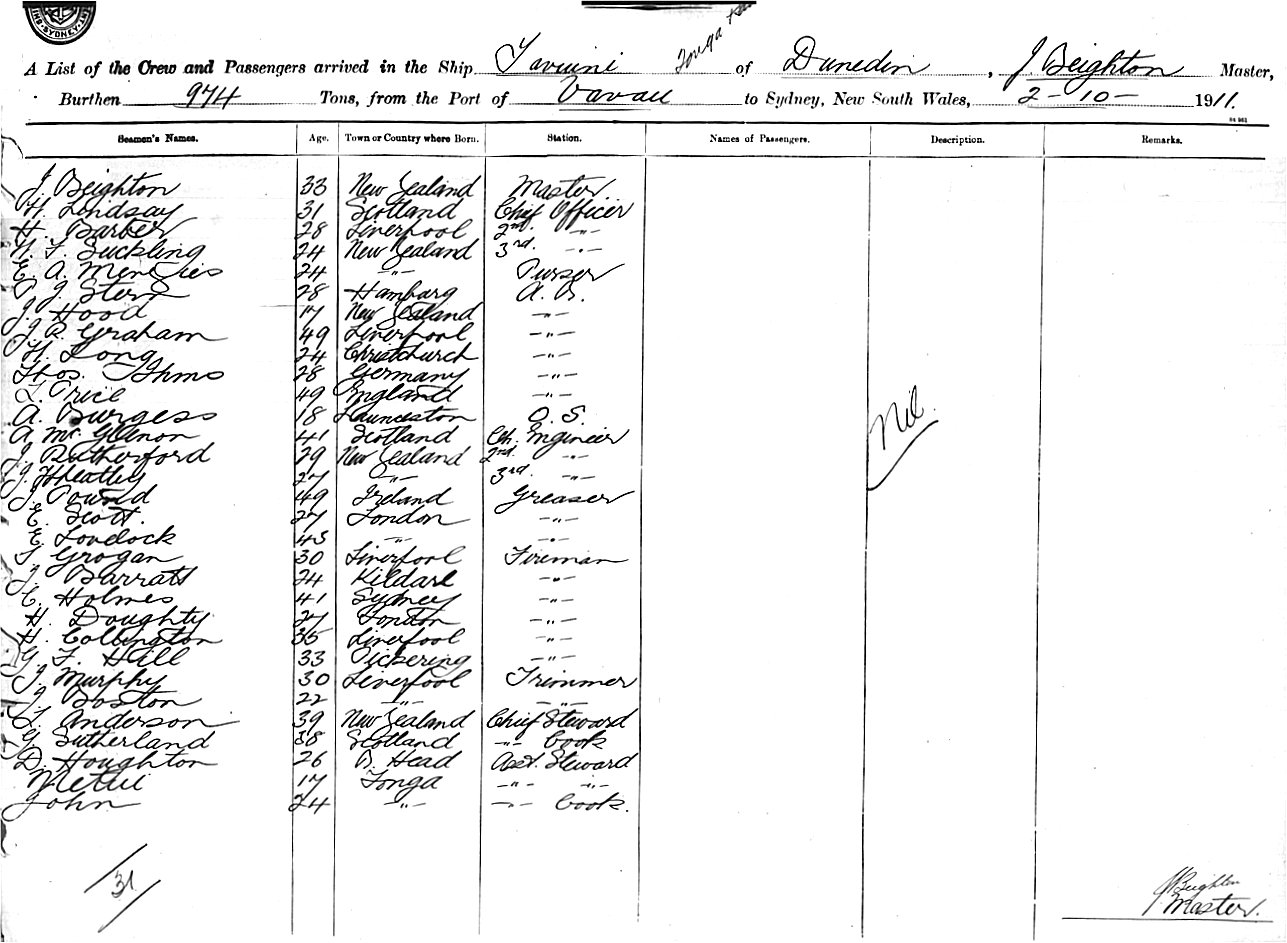 SYDNEY
Tonga
A List of the Crew and Passengers arrived in the Ship Taviuni of Dunedin, J. Beighton Master,
Burthen 974 Tons, from the Port of Vavau to Sydney, New South Wales, 2-10-1911.
Seamen's Names. Age. Town or Country where Born. Station. Names of Passengers. Description. Remarks.
J. Beighton 33 New Zealand Master
H. Lindsay 31 Scotland Chief Officer
H. Barber 28 Liverpool 2nd. -"-
N. F. Suckling 24 New Zealand 3rd. -"-
E. A. Menzies 24 -"- Purser
P. J. Stern 28 Hamburg A. B.
J. Hood 17 New Zealand -"-
J. R. Graham 49 Liverpool -"-
H. Long 24 Christchurch -"-
Thos. Thms 28 Germany -"-
L. Price 49 England -"-
A. Burgess 18 Launceston O. S.
A. Mc. Glenon 41 Scotland Ch. Engineer
J. Rutherford 29 New Zealand 2nd. -"-
J. Wheatley 27 -"- 3rd. -"-
J. Pownd 49 Ireland Greaser
E. Scott. 27 London -"-
E. Lovelock 43 -"- -"-
T. Grogan 30 Liverpool Fireman
J. Barratt 24 Kildare -"-
C. Holmes 41 Sydney -"-
H. Doughty 27 London -"-
H. Collington 35 Liverpool -"-
G. F. Hall 33 Pickering -"-
J. Murphy 30 Liverpool Trimmer
J. Boston 22 -"- -"-
L. Anderson 39 New Zealand Chief Steward
G. Sutherland 38 Scotland -"- Cook
D. Houghton 26 B. Head Asst. Steward
Metui 17 Tonga -"- -"-
John 24 -"- -"- Cook.
Nil.
31
J Beighton
Master.